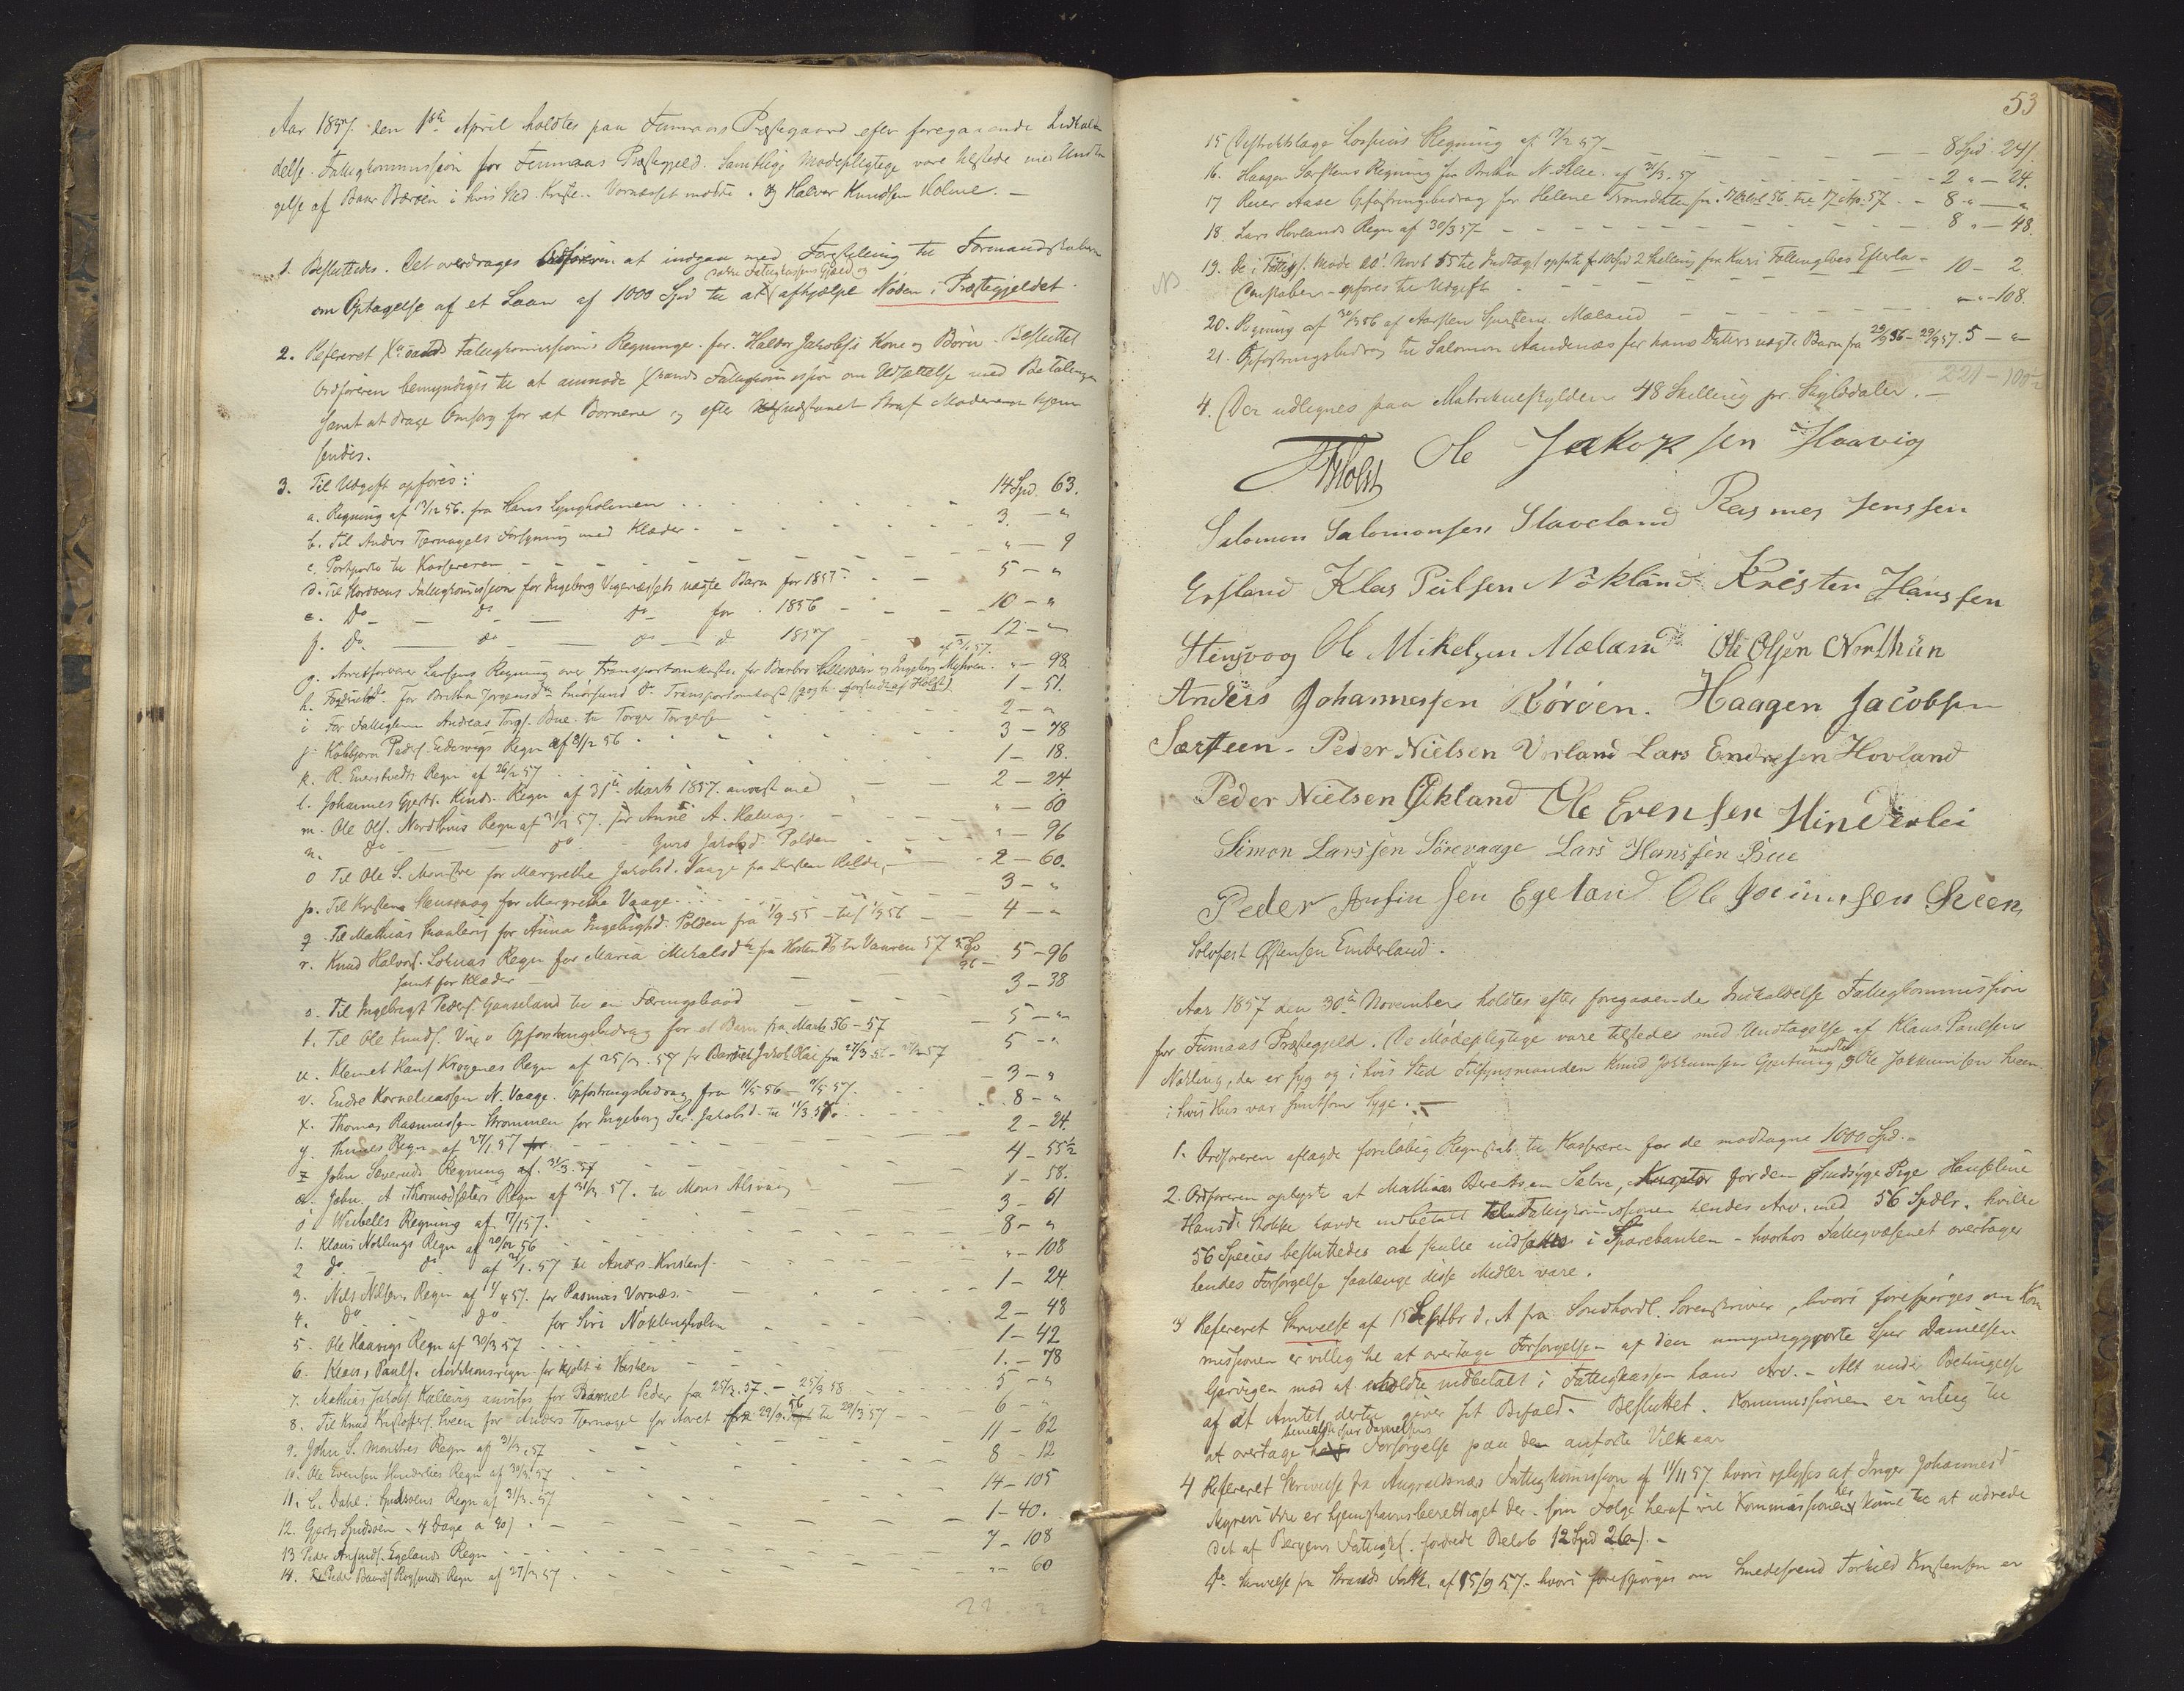 Aar 1857 den 1ste April holdtes paa Finnaas Præstegaard efter foregaaende Indkal-
delse Fattigkommission for Finnaas Præstegjeld. Samtlige Mødepligtige vare tilstede med Undta-
gelse af Baar Børøen i hvis Sted Kristen Vornæsset mødte. og Halvor Knudsen Holme. –
1. Besluttedes. Det overdrages Ordføreren at indgaa med Forestilling til Formandskabet
om Optagelse af et Laan af 1000 Spd til at afhjælpe Nøden i Præstegjeldet.
dække Fattigkassens Gjæld og
2. Refereret Fattigkommissions Regninger for Haldor Jakobs's Kone og Børn. Besluttet
Ordføreren bemyndiges til at anmode Fattigkommission om Udsættelse med Betalingen
samt at drage Omsorg for at Børnene og efter udstanden Straf Moderen hjem
sendes.
3. Til Udgift opføres:
a. Regning af 17/12 56. fra Hans Lyngholmen . . . 14 Spd. 63.
b. Til Anders Tjernagels Forsyning med Klæder. - - 3. - "
c. Postporto til Kassereren - - - " - 9
d. Til Mordvens Fattigkommission for Ingeborg Vigenæssets uægte Barn for 1855 - - 5 - "
e. Do - Do - Do for 1856 - - 10 - "
f. Do - do - do - d 1857 - - 12 - "
g. Arrestforvarer Larsens Regning over Transportomkostn. for Barbro og Ingeborg Myhren. af 31/1 57. " - 98.
h. for Britha Jørgensdtr Do. Transportomkost (forskudt af Holst) 1 - 51.
i For Fattiglem Andreas Torgs. Bue til Torger Torgersen 2 - "
j. Kolbjørn Peders. Eidesvigs Regn af 31/12 56 . - 3 - 78
k. R. Everstvedts Regn af 26/2 57 . . 1 - 18.
l. Johannes Gjerts. Kinds. Regn af 31te Marts 1857. anvist med - 2 - 24.
m. Ole Ols. Nordthuns Regn af 31/3 57. for Anne A. Halvag. - " - 60
n. do - do - Guro Jakobsd. Polden " - 96
o Til Ole S. Monstre for Margrethe Jakobsd. Vaage fra Hilde, - 2 - 60.
p. Til Kristens for Margrethe Vaage . . . 3 - "
q Til Mathias for Anna Ingebrigtd. Polden fra 1/9 55 - til 1/9 56 - 4 - "
r. Knud Halvors. Loknas Regn for Maria Mikalsdtr fra Høsten 56 til Vaaren 57 5 Sp
samt for Klæder - 96 - 5 - 96
s. Til Ingebrigt Peders. Gaaseland til en Færingsbaad - - 3 - 38
t. Til Ole Knuds. Opfostringsbidrag for et Barn fra Marts 56 - 57 - 5 - "
u. Klemet Hans Krognes Regn af 25/3. 57 for Barnet Jakob Olai fra 27/3 56 - 57 5 - "
v. Endre Korneliussen N. Vaage. Opfostringsbidrag fra 11/5 56 - 11/5 57. - 3 - "
x. Thomas Rasmussen Strømmen for Ingeborg Jakobsd til 11/3 57. . . 8 - "
y. Thunes Regn af 27/1 57 - 2 - 24.
z John Sæveruds Regning af 31/3 57 - 4 - 55½
æ. John. A. Thormodsæters Regn af 31/3 57. til Mons Alsvaag 1 - 58.
ø Weibells Regning af 7/1 57. 3 - 61
1. Klaus Nøklings Regn af 20/12 56 8 - "
2 do - do af 3/1. 57 til Anders Kristens. " - 108
3. Nils Nilsens Regn af 1/4 57. for Rasmus Vornæs. - 1 - 24
4. do - do for Siri Nøklingholm 2 - 48
5. Ole Haavigs Regn af 30/3 57 . . . 1 - 42
6. Klaus Pauls. Auktionsregn. for kjøbt i 1. - 78
7. Mathias Jakobs. Kallevig anvises for Barnet Peder fra 25/3. 57. - 25/3 58 5 - "
8. Til Knud Kristoffers. Sveen for Anders Tjernagel for Aaret fra 29/9 56 til 29/9 57 - 6 - "
9. John S. Monstres Regn af 31/3. 57 11 - 62
10. Ole Evensen Hinderlies Regn af 30/3. 57 8 - 12
11. C. Dahl i Spidsøens Regn af 31/3. 57 14 - 105
12. Gjerts Spidsøen - 4 Dage a 40 s . - 1 - 40.
13 Peder Ansfinds. Egelands Regn 7 - 108
14. Peder Baards Røgsunds Regn af 27/3 57 " - 60
53
15 Distriktslæge Lossius Regning af 7/2 57 - 8 Spd 24 s.
16. Haagen Særstens Regning for Britha N. Slee. af 31/3. 57 - 2 " - 24.
17 Reier Aase Opfostringsbidrag for Helene Tronsdatter fra 17 April 56 til 17 Ap. 57. - 8 " - "
18. Lars Hovlands Regn af 30/3 57 - 8 " - 48.
19. De i Fattigk. Møde 20. Novb 55 til Indtægt opførte 10 Spd 2 Skilling fra Kari Follinglies Efterla-
NB
denskaber - opføres til Udgift 10 - 2.
20. Regning af 30/3 56 af Karsten Sjurssen Mæland " - 108.
21. Opfostringsbidrag til Salomon Aandenæs for hans Datters uægte Barn fra 29/9 56 - 29/9 57. 5 - "
221 - 100½
4. Der udlignes paa Matrikulskylden 48 Skilling pr. Skylddaler. -
Holst Ole Jakopsen Haavig
Salomon Salomonsen Staveland Rasmes Jenssen
Erfland Klas Pulsen Nökland Kristen Hanssen
Stensvog Ole Mikelsen Mæland Ole Olsen Northun
Anders Johannessen Röröen. Haagen Jacobsen
Særsteen - Peder Nielsen Vorland Lars Endresen Hovland
Peder Nielsen Økland Ole Evensen Hinderlei
Simon Larssen Sörevaage Lars Hanssen Bue
Peder Ansfinsen Egeland Ole Jokumsen Sveen
Solvfest Østensen Emberland.
Aar 1857 den 30te November holdtes efter foregaaende Indkaldelse Fattigkommission
for Finnaas Præstegjeld. De Mødepligtige vare tilstede med Undtagelse af Klaus Paulsen
Nøkling, der er syg og i hvis Sted Tilsynsmanden Knud Jokkumsen mødte, og Ole Jokkumsen Sveen
i hvis Hus var smitsom Syge. –
1. Ordføreren aflagde foreløbig Regnskab til Kassereren for de modtagne 1000 Spd. -
2. Ordføreren oplyste at Mathias Berentsen Sætre, Kurator for den sindssyge Pige Hanseline
Hansdtr Stokke havde indbetalt til Fattigkommissionen hendes Arv. med 56 Spdlr. hvilke
56 Species besluttedes at skulle indsættes i Sparebanken - hvorhos Fattigvæsenet overtager
hendes Forsørgelse saalænge disse Midler vare.
3 Refereret Skrivelse af 15 Septbr d. A fra Søndhordl. Sorenskriver, hvori forespørges om Kom
missionen er villig til at overtage Forsørgelsen af den umyndiggjorte Sjur Danielsen
Gjervigen mod at erholde indbetalt i Fattigkassen hans Arv. - Alt under Betingelse
af at Amtet dertil giver sit Bifald. Besluttet. Kommissionen er villig til
at overtage Sjur Danielsens Forsørgelse paa den anførte Vilkaar
4 Refereret Skrivelse fra Augvaldsnæs Fattigkommission af 11/11 57 hvori oplyses at Inger Johannesd
Myren ikke er hjemstavnsberettiget der - som Følge heraf vil Kommissionen her komme til at udrede
det af Bergens Fattigk. fordrede Beløb 12 Spd 26 s. -
Do Skrivelse fra Strands Fattk. af 15/9 57 - hvori forespørges om Smedesvend Torkild Kristensen er